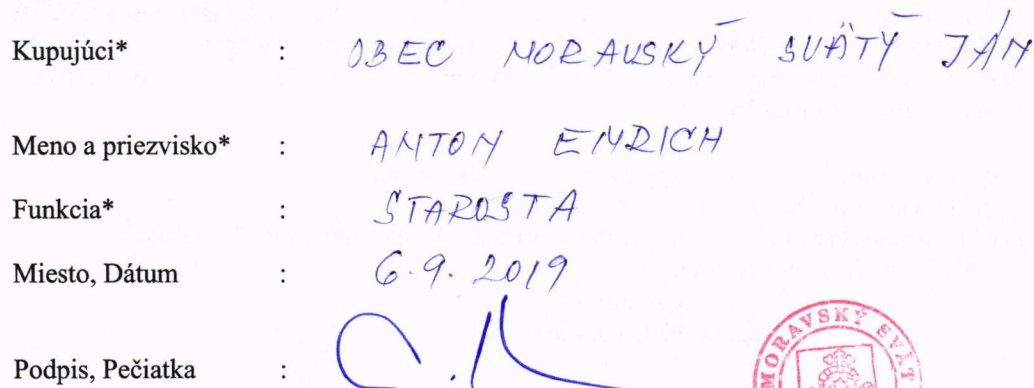 Kupujúci* : OBEC MORAVSKÝ SVÄTÝ JÁN
Meno a priezvisko* : ANTON EMRICH
Funkcia* : STAROSTA
Miesto, Dátum : 6.9.2019
Podpis, Pečiatka :
MORAVSKÝ SVÄT